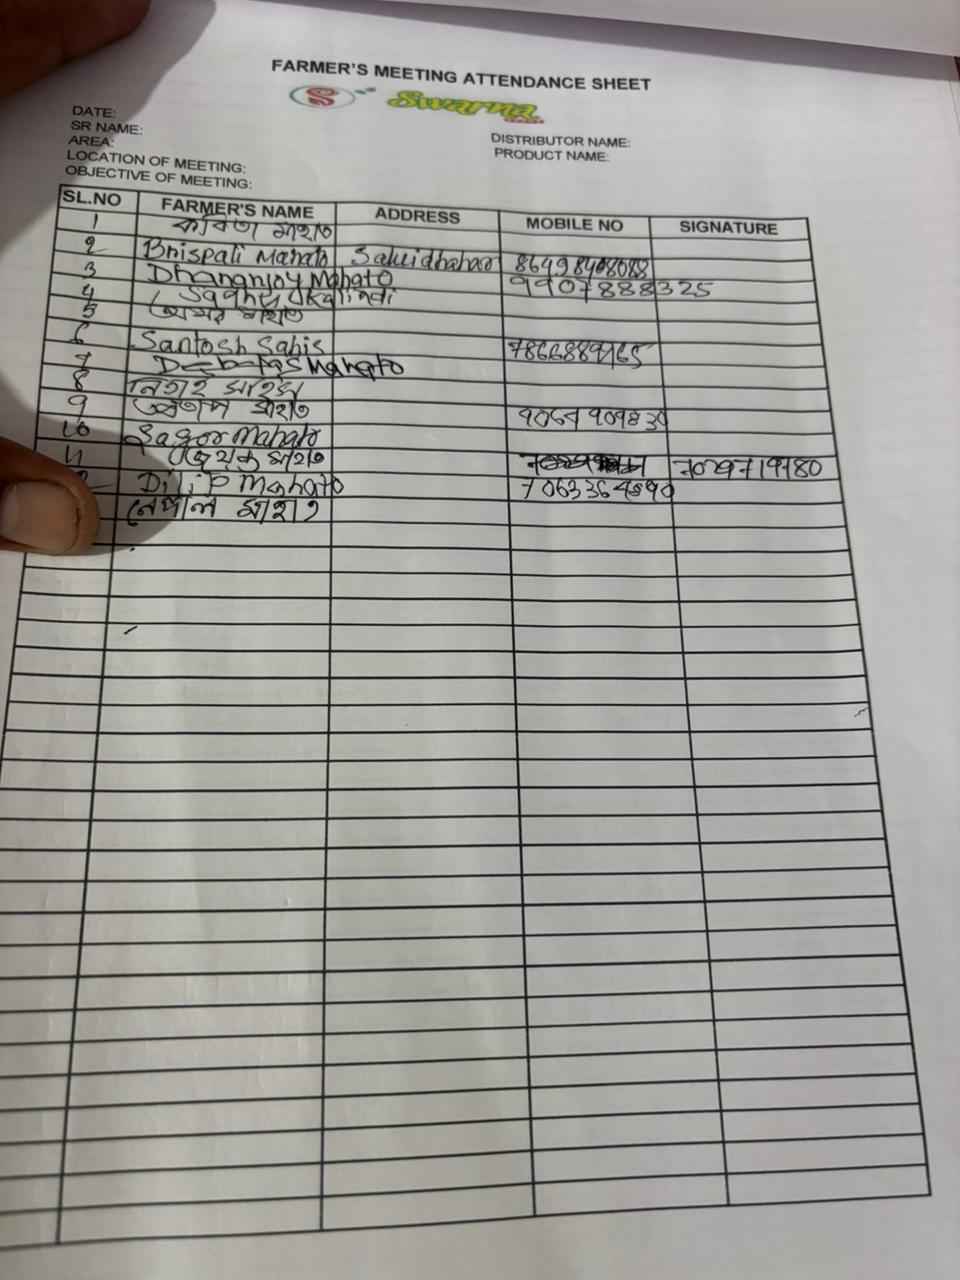 FARMER'S MEETING ATTENDANCE SHEET
S Swarna
DATE:
SR NAME:
AREA:
LOCATION OF MEETING:
OBJECTIVE OF MEETING:
DISTRIBUTOR NAME:
PRODUCT NAME:
SL.NO FARMER'S NAME ADDRESS MOBILE NO SIGNATURE
1 কবিতা মাহাত
2 Brispati Mahato 86498408088
3 Dhananjoy Mahato 9907888325
4 Kalindi
5 মাহাত
6 Santosh Sahis 7866889765
7 Debatas Mahato
8 নিতাই মাহাত
9 প্রতাপ মাহাত 9064909830
10 Sagor Mahato
11 মাহাত 7029719180
Dilip Mahato 7063364890
নেপাল মাহাত